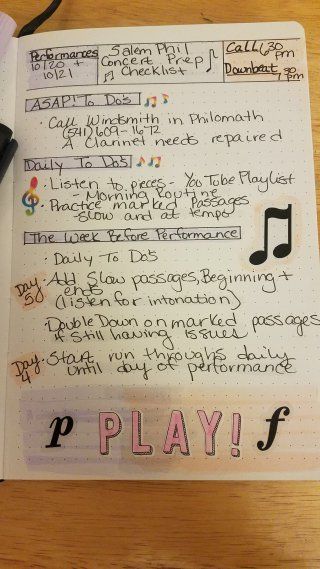 Performances
10/20 +
10/21
Salem Phil
Concert Prep
Checklist
Call 6:30 pm
Downbeat 8pm
ASAP! To Do's
· Call Windsmith in Philomath
(541) 609-1672
A Clarinet needs repaired
Daily To Do's
· Listen to pieces - YouTube Playlist
- Morning Routine
· Practice marked passages
- slow and at tempo
The Week Before Performance
· Daily To Do's
Day 5
· Add Slow passages, Beginning +
ends
(listen for intonation)
· Double Down on marked passages
if still having issues
Day 4
· Start run throughs daily
until day of performance
p PLAY! f